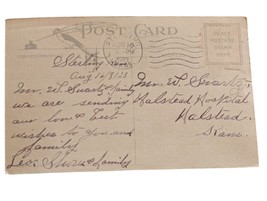 POST CARD
PLACE
POSTAGE
STAMP
HERE
Sterling Kan
Aug 16 1928
Mr. W. Swartz & family
we are sending
our love & best
wishes to you and
family
Leo & family
Mr. W. Swartz
Halstead Hospital
Halstead,
Kans.